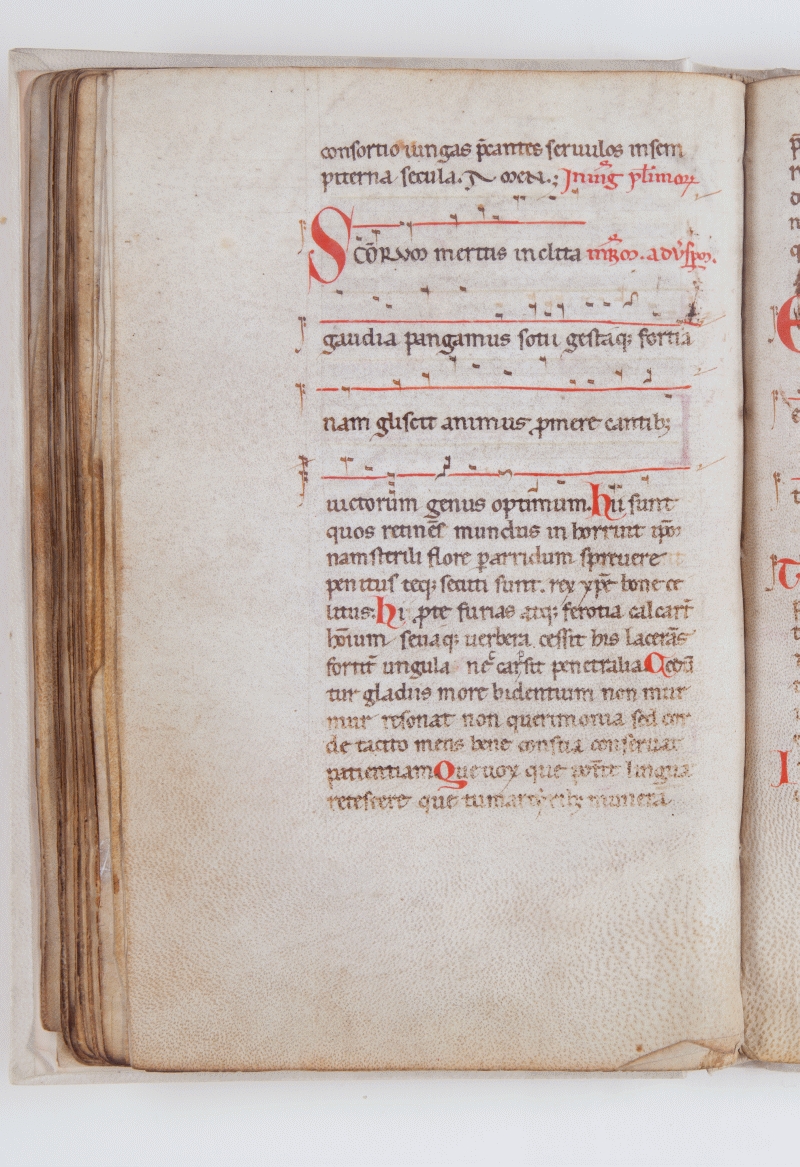 consortio iungas p̄cantes seruulos insem
piterna secula. AMEN.; In nīg pl'imoꝝ
SCŌRVM meritis inclita mr̄m. ad ūspōs.
gaudia pangamus sotii gestaq; fortia
nam gliscit animus ꝓmere cantib;
uictorūm genus optimum. hii sunt
quos retinēs mundus inhorruit ip̄os
nam sterili flore ꝑarridum spreuere
penitus teq; secuti sunt. rex xp̄e bone ce
litus. hi ꝓte furias atq; ferotia calcart̄
hōium seuaq; uerbera. cessit his lacerās
fortit̄ ungula nec̄ carpsit penetralia. Cedū
tur gladiis more bidentium non mur
mur resonat non querimonia sed cor
de tacito mens bene conscia conseruat
patientiam Que uox que potit̄ lingua
retescere que tu martyrib; munera